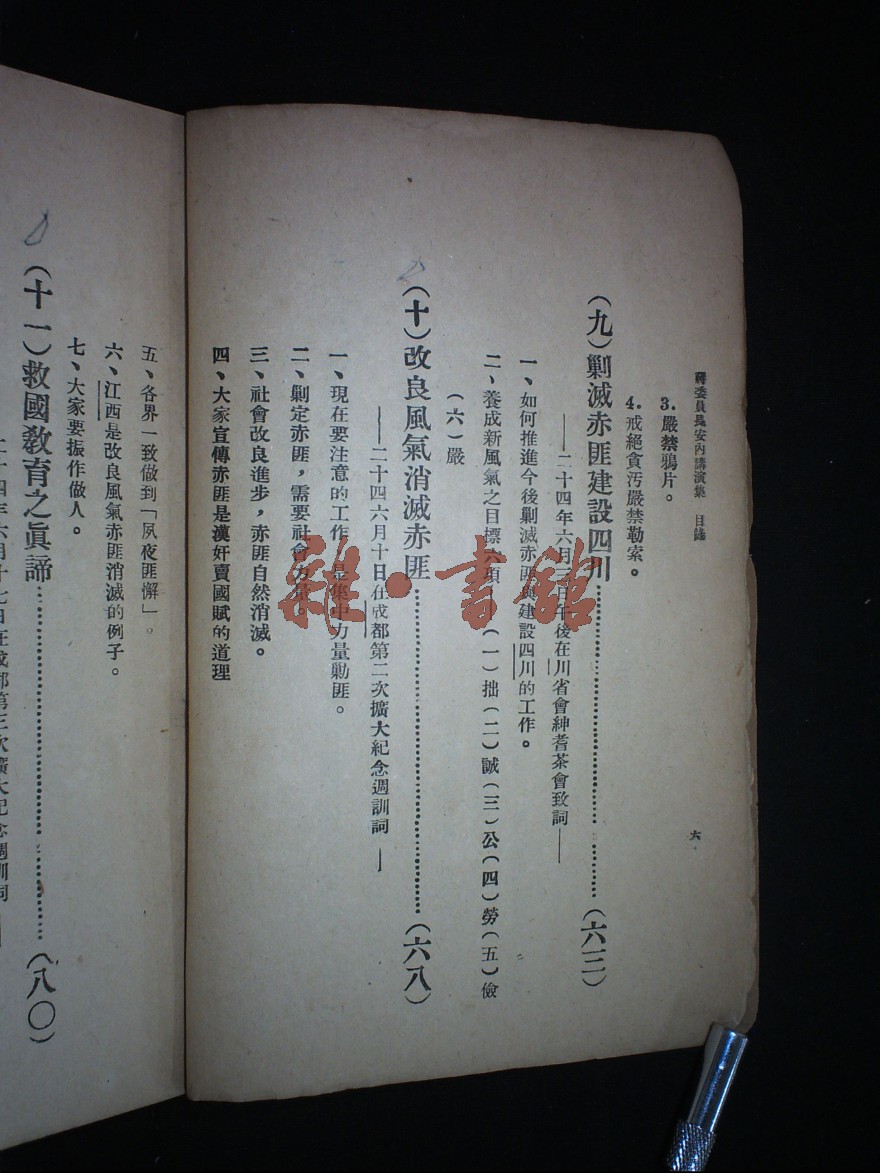 蔣委員長安內講演集 目錄
3．嚴禁鴉片。
4．戒絕貪污嚴禁勒索。
（九）剿滅赤匪建設四川……（六三）
——二十四年六月三日午後在川省會紳耆茶會致詞——
一、如何推進今後剿滅赤匪與建設四川的工作。
二、養成新風氣之目標六項（一）拙（二）誠（三）公（四）勞（五）儉
（六）嚴
（十）改良風氣消滅赤匪……（六八）
——二十四六月十日在成都第二次擴大紀念週訓詞——
一、現在要注意的工作，是集中力量勦匪。
二、剿定赤匪，需要社會力量。
三、社會改良進步，赤匪自然消滅。
四、大家宣傳赤匪是漢奸賣國賊的道理
六
五、各界一致做到「夙夜匪懈」。
六、江西是改良風氣赤匪消滅的例子。
七、大家要振作做人。
（十一）救國教育之眞諦……（八〇）
二十四年六月十七日在成都第三次擴大紀念週訓詞——
雜·書館